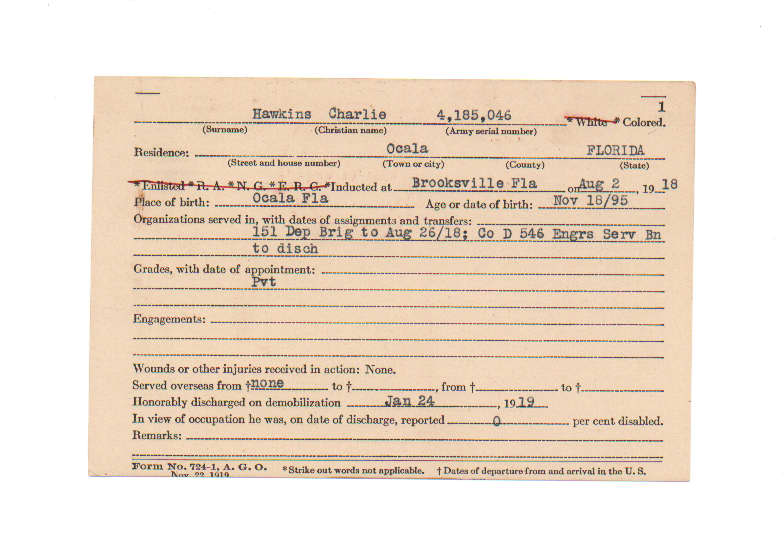 1
Hawkins Charlie 4,185,046 * White * Colored.
(Surname) (Christian name) (Army serial number)
Residence: Ocala FLORIDA
(Street and house number) (Town or city) (County) (State)
* Enlisted * R. A. * N. G. * E. R. C. * Inducted at Brooksville Fla on Aug 2, 1918
Place of birth: Ocala Fla Age or date of birth: Nov 18/95
Organizations served in, with dates of assignments and transfers:
151 Dep Brig to Aug 26/18; Co D 546 Engrs Serv Bn
to disch
Grades, with date of appointment:
Pvt
Engagements:
Wounds or other injuries received in action: None.
Served overseas from † none to †, from † to †
Honorably discharged on demobilization Jan 24, 1919
In view of occupation he was, on date of discharge, reported 0 per cent disabled.
Remarks:
Form No. 724-1, A. G. O. * Strike out words not applicable. † Dates of departure from and arrival in the U. S.
Nov. 22 1919.